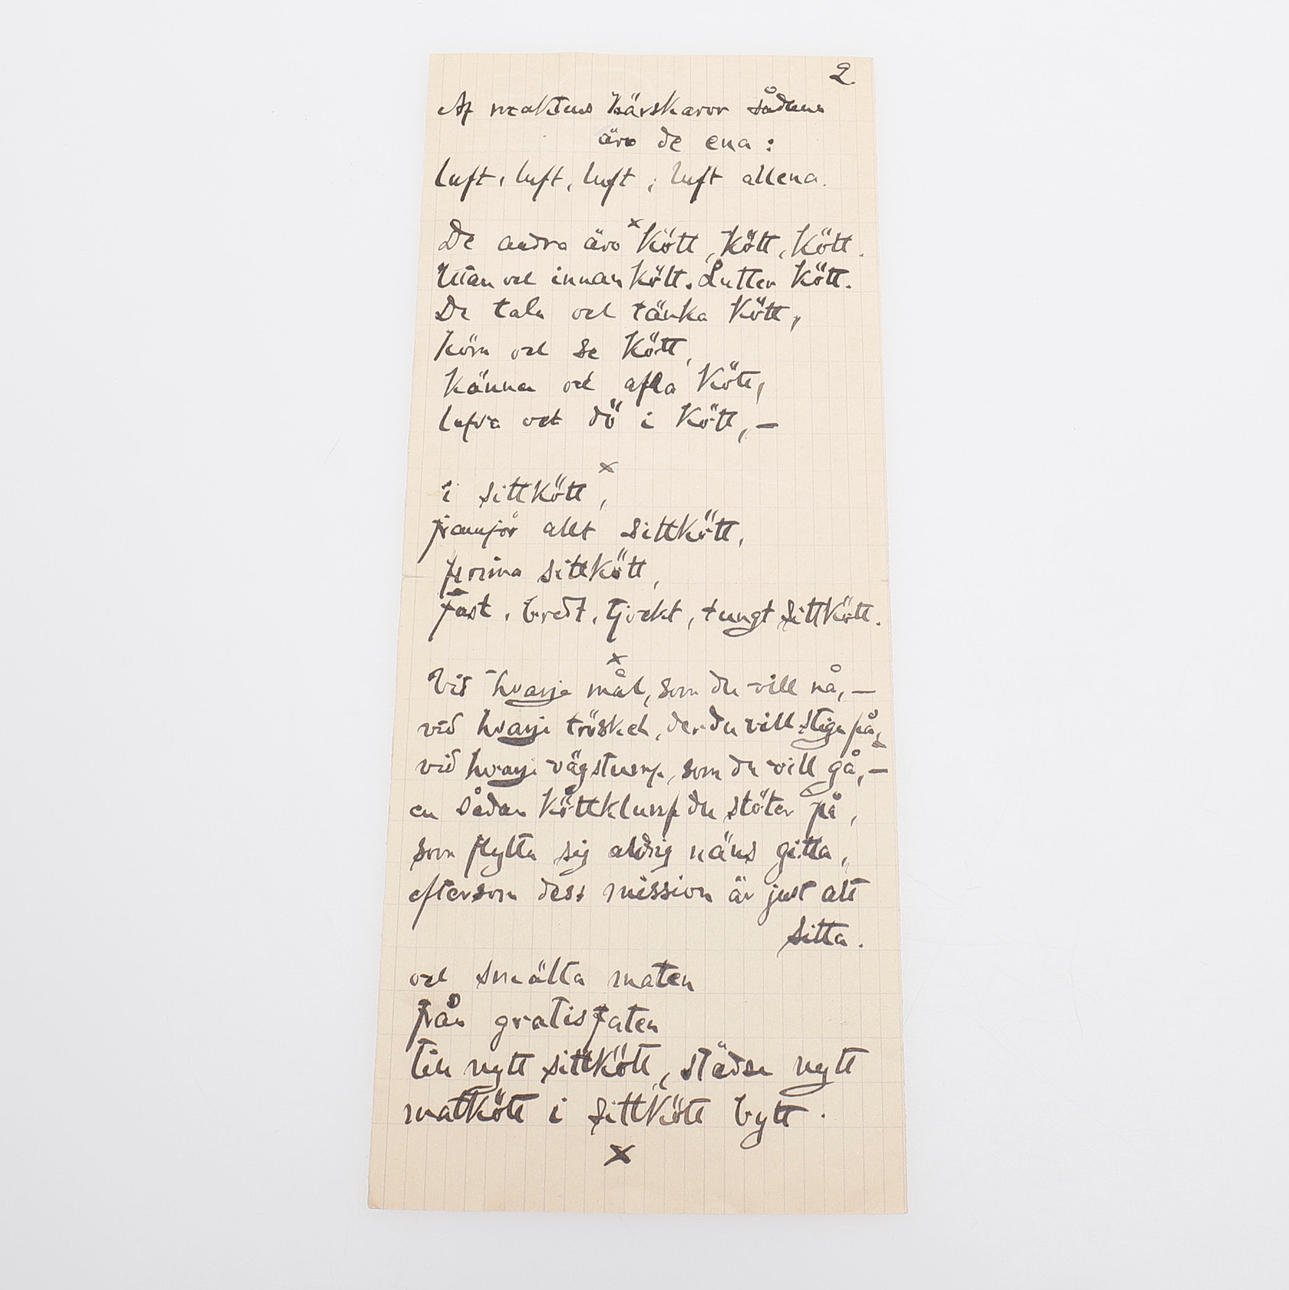 2.
Af maktens härskaror sådana
äro de ena:
luft, luft, luft, luft allena.
x
De andra äro kött, kött, kött.
Utan och innan kött. Lutter kött.
De tala och tänka kött,
höra och se kött,
känna och afla kött,
lefva och dö i kött, —
x
i sittkött,
framför allt sittkött,
prima sittkött,
fast, bredt, tjockt, tungt sittkött.
x
Vid hvarje mål, som du vill nå, —
vid hvarje tröskel, der du vill stiga på,
vid hvarje vägstump, som du vill gå, —
en sådan köttklump du stöter på,
som flytta sig aldrig näns gitta,
eftersom dess mission är just att
sitta.
och smälta maten
från gratisfaten
till nytt sittkött, städse nytt
matkött i sittkött bytt.
x